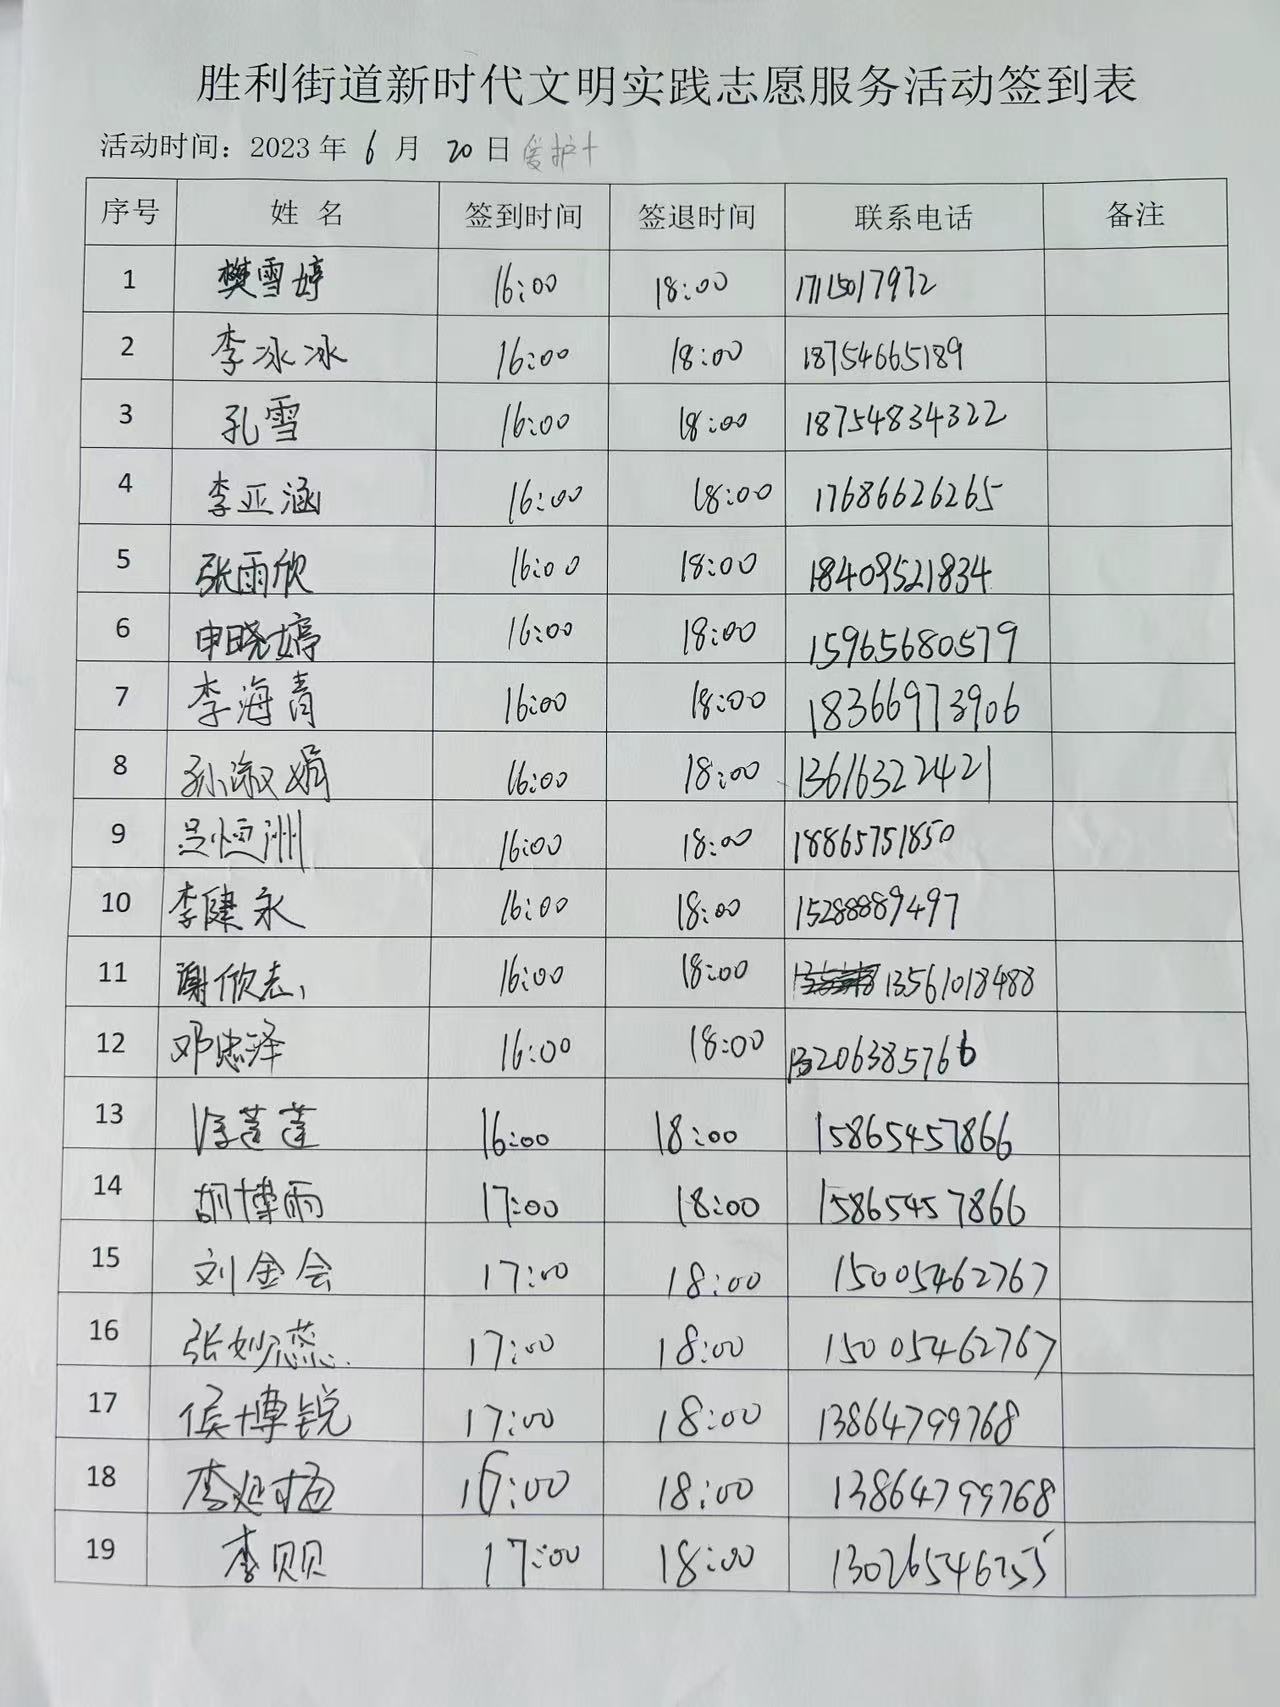 胜利街道新时代文明实践志愿服务活动签到表
活动时间：2023 年 6 月 20 日 爱护十
序号 姓 名 签到时间 签退时间 联系电话 备注
1 樊雪婷 16:00 18:00 17115017972
2 李冰冰 16:00 18:00 18754665189
3 孔雪 16:00 18:00 18754834322
4 李亚涵 16:00 18:00 17686626265
5 张雨欣 16:00 18:00 18409521834
6 申晓婷 16:00 18:00 15965680579
7 李海青 16:00 18:00 18366973906
8 孙淑娟 16:00 18:00 13616322421
9 吴恒洲 16:00 18:00 18865751850
10 李健永 16:00 18:00 15288889497
11 谢欣志 16:00 18:00 13561018488
12 邓忠泽 16:00 18:00 13206385766
13 徐莲莲 16:00 18:00 15865457866
14 胡博雨 17:00 18:00 15865457866
15 刘金会 17:00 18:00 15005462767
16 张妙蕊 17:00 18:00 15005462767
17 侯博锐 17:00 18:00 13864799768
18 16:00 18:00 13864799768
19 李贝贝 17:00 18:00 13026546255